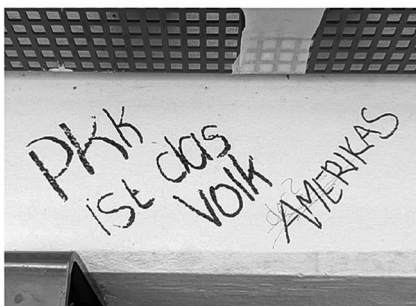 PKK
ist das
VOlk
AMERIKAS